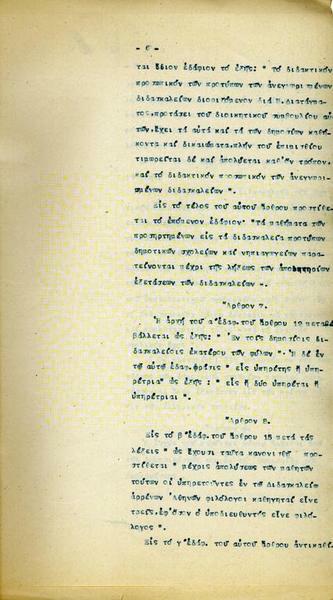 - 6 -
ται ἴδιον ἐδάφιον τό ἑξῆς: " Τό διδακτικόν
προσωπικόν τῶν προτύπων τῶν ἀνεγνωρισμένων
διδασκαλείων διοριζόμενον διά Β.Διατάγμα-
τος,προτάσει τοῦ διοικητικοῦ συμβουλίου αὐ
τῶν,ἔχει τά αὐτά καί τά τῶν δημοσίων καθή-
κοντα καί δικαιώματα,πλήν τοῦ ἐπιμισθίου
τιμωρεῖται δέ καί ἀπολύεται καθ'ὅν τρόπον
καί τό διδακτικόν προσωπικόν τῶν ἀνεγνωρι-
σμένων διδασκαλείων ".
Εἰς τό τέλος τοῦ αὐτοῦ ἄρθρου προστίθε-
ται τό ἑπόμενον ἐδάφιον· "Τά μαθήματα τῶν
προσηρτημένων εἰς τά διδασκαλεῖα προτύπων
δημοτικῶν σχολείων καί νηπιαγωγείων παρα-
τείνονται μέχρι τῆς λήξεως τῶν ἀπολυτηρίων
ἐξετάσεων τῶν διδασκαλείων ".
Ἄρθρον 7.
Ἡ ἀρχή τοῦ α'ἐδαφ.τοῦ ἄρθρου 12 μεταβά
βάλλεται ὡς ἑξῆς: " Ἐν τοῖς δημοσίοις δι-
δασκαλείοις ἑκατέρου τῶν φύλων ". Ἡ δέ ἐν
τῷ αὐτῷ ἐδαφ.φράσις " εἷς ὑπηρέτης ἤ ὑπη-
ρέτρια" ὡς ἑξῆς : " εἷς ἤ δύο ὑπηρέται ἤ
ὑπηρέτριαι ".
Ἄρθρον 8.
Εἰς τό β'ἐδάφ.τοῦ ἄρθρου 15 μετά τάς
λέξεις " ὡς ἔχουσι ταῦτα κανονισθῇ προσ-
τίθεται " μέχρις ἀπολύσεως τῶν μαθητῶν
τούτων οἱ ὑπηρετοῦντες ἐν τῷ διδασκαλείῳ
ἀρρένων Ἀθηνῶν φιλόλογοι καθηγηταί εἶνε
τρεῖς,ἐφ'ὅσον ὁ ὑποδιευθυντής εἶνε φιλό-
λογος ".
Εἰς τό γ'ἐδάφ. τοῦ αὐτοῦ ἄρθρου ἀντικαθί-